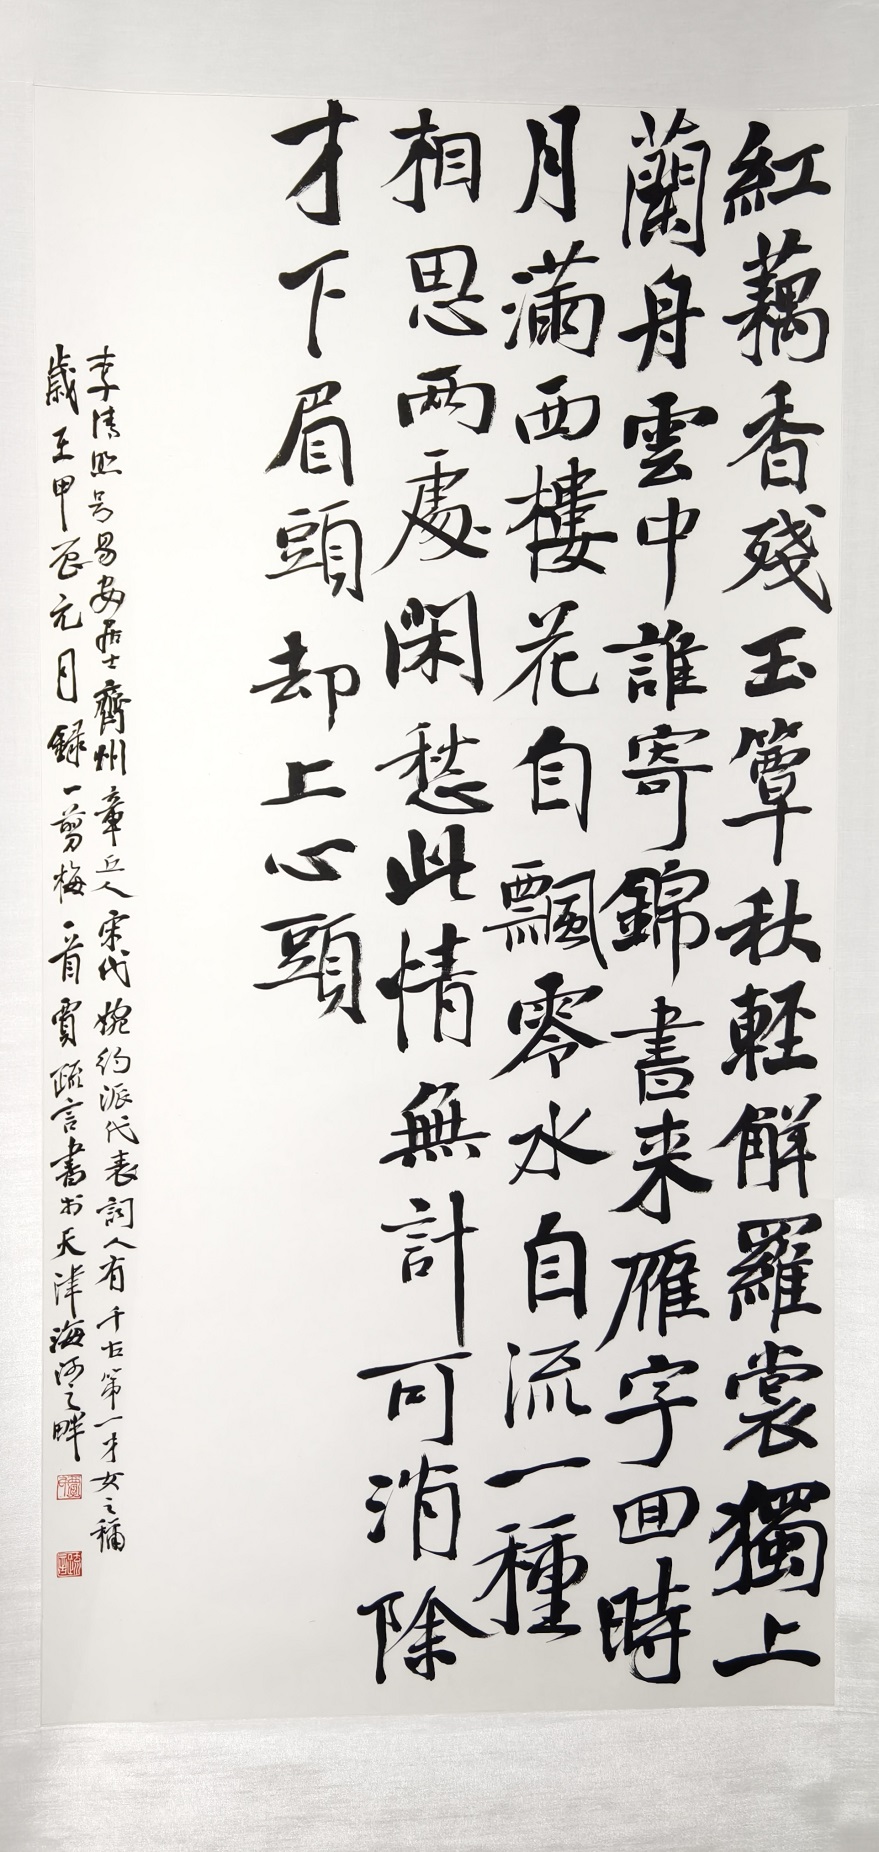 紅藕香殘玉簟秋輕解羅裳獨上
蘭舟雲中誰寄錦書来雁字回時
月滿西樓花自飄零水自流一種
相思兩處閑愁此情無計可消除
才下眉頭却上心頭
李清照号易安居士齊州章丘人宋代婉约派代表詞人有千古第一才女之稱
歲至甲辰元月録一剪梅一首賈疏言書於天津海河之畔